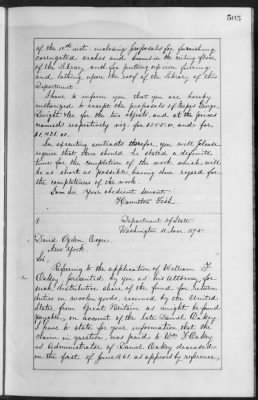 505
of the 10th inst. enclosing proposals for furnishing
corrugated arches and beams in the ceiling floor
of the Library and for putting up iron furring
and lathing upon the roof of the library of this
Department.
I have to inform you that you are hereby
authorized to accept the proposals of
for the two objects, and at the prices
named respectively viz: for and for
$1,421.00.
In executing contracts therefor, you will please
require that there should be stated a definite
time for the completion of the work, which will
be as short as possible having due regard for
the completeness of the work.
I am Sir Your obedient servant
Hamilton Fish
Department of State
Washington 11 Nov. 1875
David Ogden Esqre.
New York
Sir,
Referring to the application of William F.
Oakey, presented by you as his Attorney, for
such distributive share of the fund for return
duties on woolen goods, received by the United
States from Great Britain as might be found
payable, on account of the late Daniel Oakey
I have to state for your information that the
claim in question, was paid to Wm F. Oakey
as Administrator of Daniel Oakey deceased
on the first of June 1861 as appears by reference